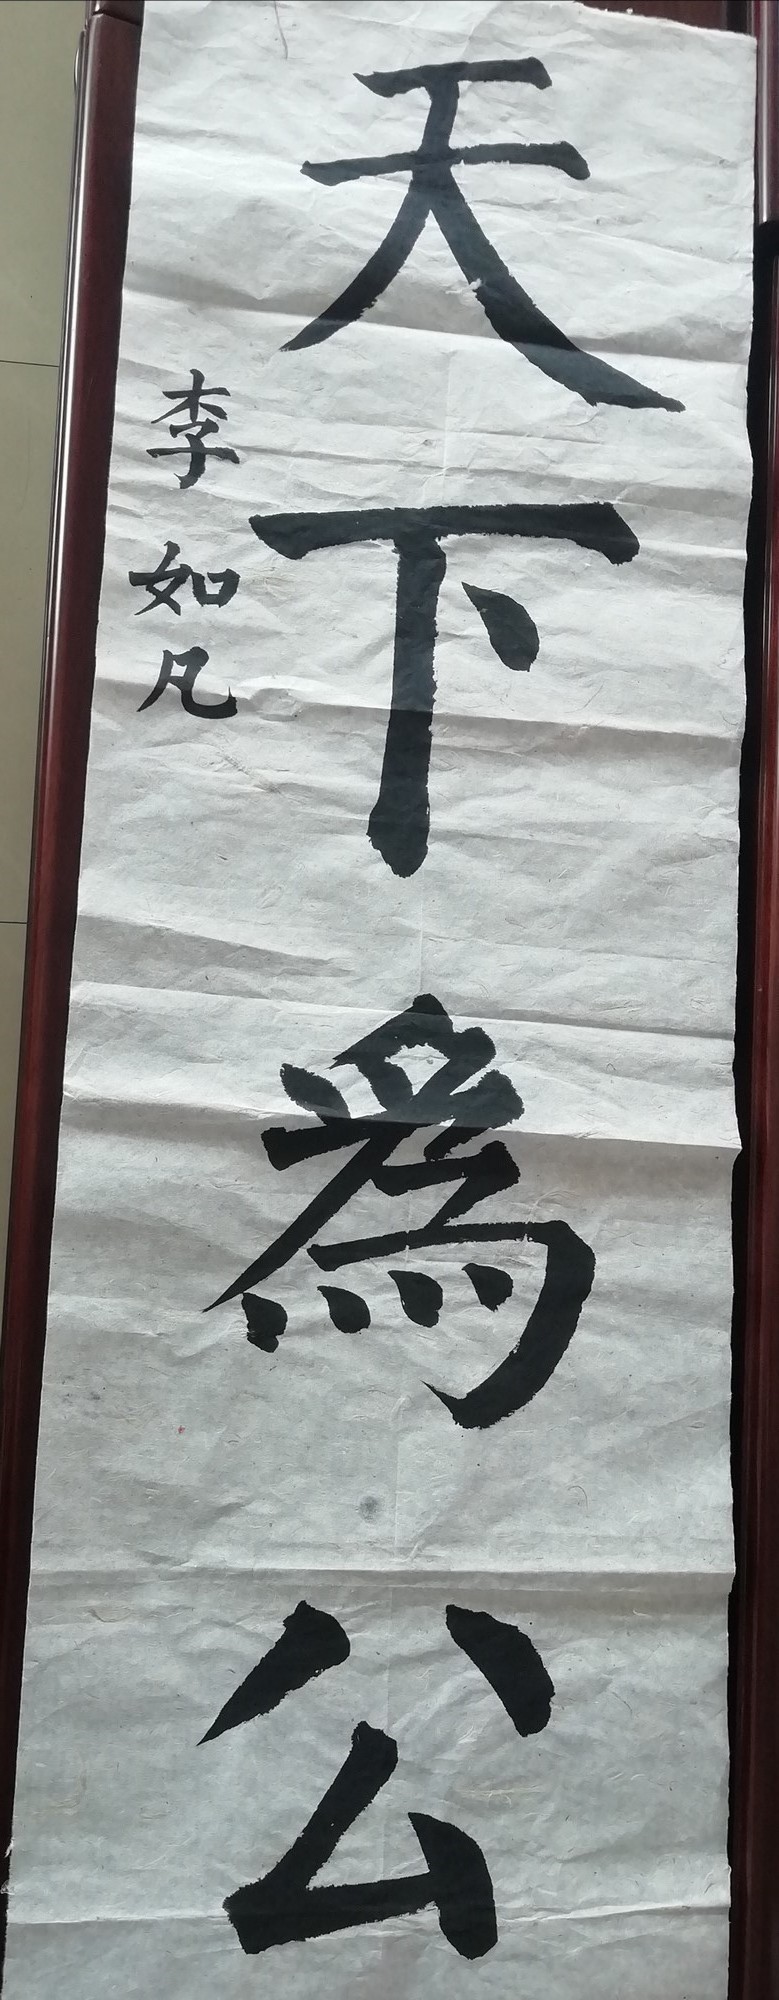 天下為公
李如凡